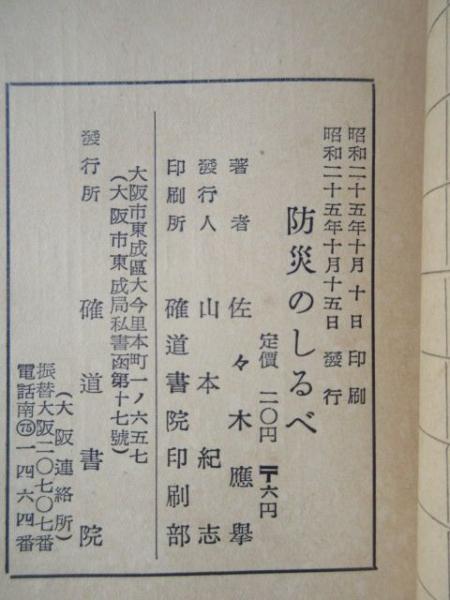 昭和二十五年十月十日 印刷
昭和二十五年十月十五日 發行
防災のしるべ
定價 二〇円 〒六円
著者 佐々木應擧
發行人 山本紀志
印刷所 確道書院印刷部
大阪市東成區大今里本町一ノ六五七
(大阪市東成局私書函第十七號)
發行所 確道書院
(大阪連絡所)
振替大阪二〇七〇七番
電話南㊄一四六四番